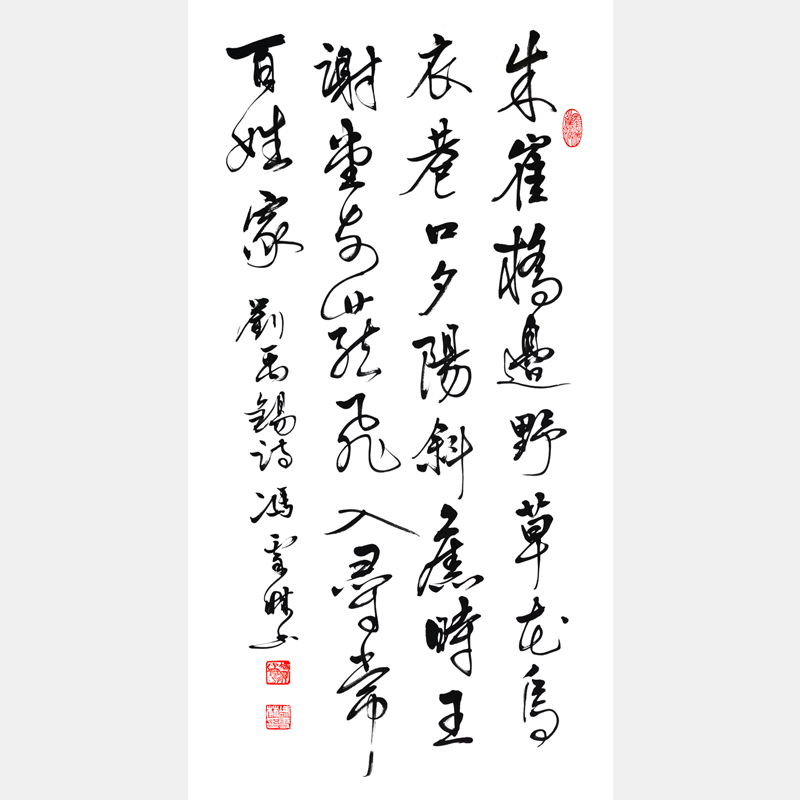 朱雀橋邊野草花烏
衣巷口夕陽斜舊時王
謝堂前燕飛入尋常
百姓家
劉禹錫詩 馮雪林书